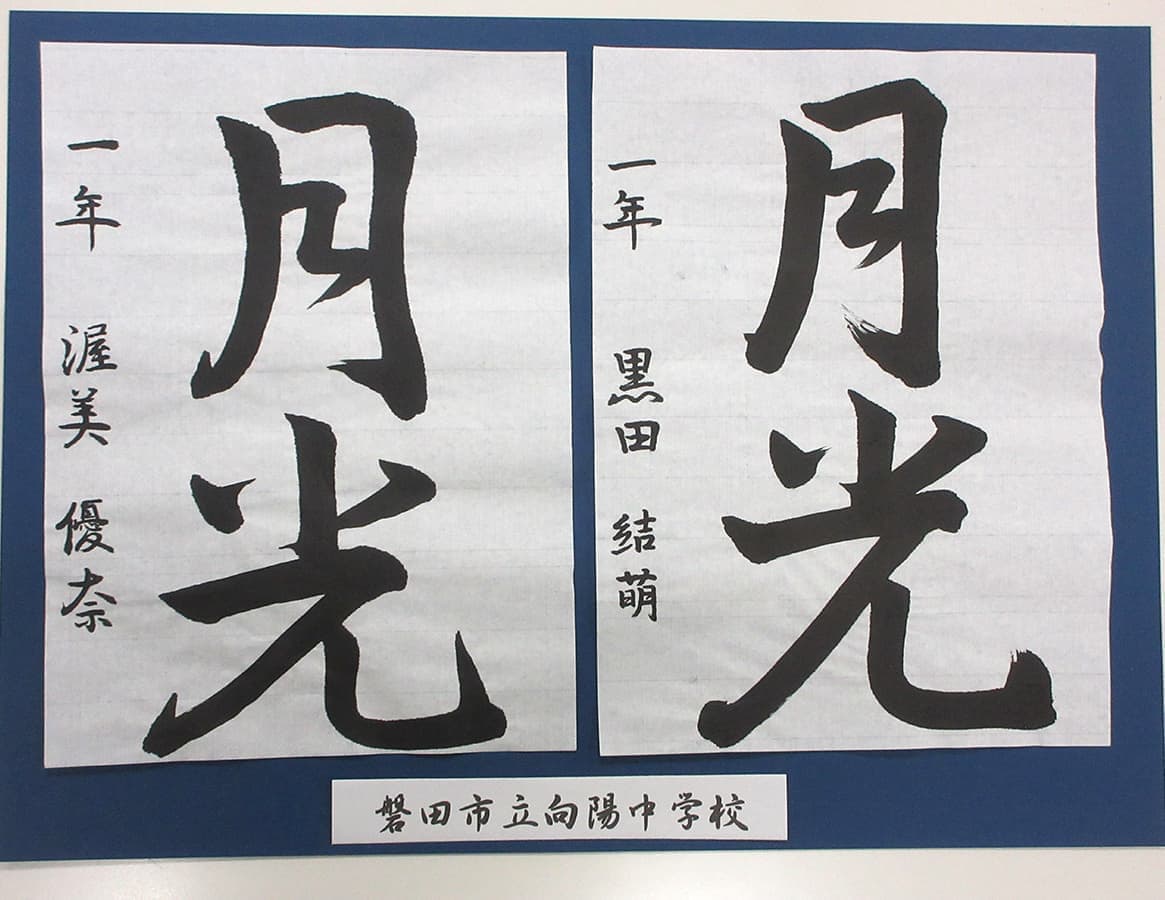 月光
一年 黒田 結萌
月光
一年 渥美 優奈
磐田市立向陽中学校